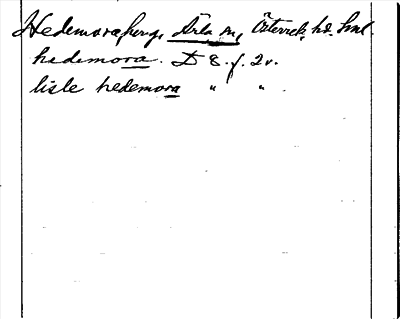 Hedemora, herg, Ärla sn, Österrek. hd. Sml.
hedemora. D 8. f. 2v.
lisle hedemora " "